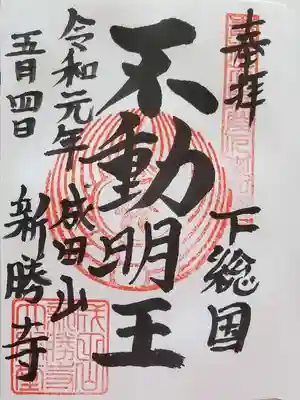 奉拝
下総国
不動明王
成田山
新勝寺
令和元年
五月四日